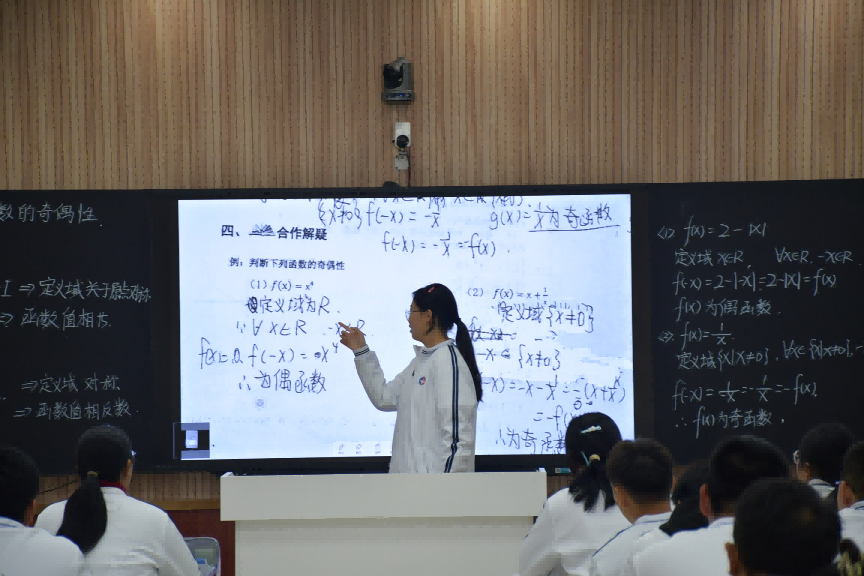 数的奇偶性.
I ⇒ 定义域关于原点对称
⇒ 函数值相
⇒ 定义域 对称
⇒ 函数值相反数.
{x≠0} f(-x) = -1/x
g(x)=1/x 为奇函数
f(-x) = -1/x = -f(x) .
四、 合作解疑
例：判断下列函数的奇偶性
(1) f(x) = x⁴
定义域为R.
∴∀ x∈R . -x∈R
f(-x) = x⁴
∴为偶函数
(2) f(x) = x + 1/x
定义域{x≠0}
{x≠0}
-x) = -x - 1/x = -(x+1/x)
= -f(
∴为奇函数
(1) f(x)=2-|x|
定义域 x∈R, ∀x∈R. -x∈R.
f(-x)=2-|-x|=2-|x|=f(x)
f(x)为偶函数.
(2) f(x)=1/x.
定义域{x|x≠0}, ∀x∈{x|x≠0}, -
f(-x)=1/-x=-1/x=-f(x).
∴ f(x)为奇函数.